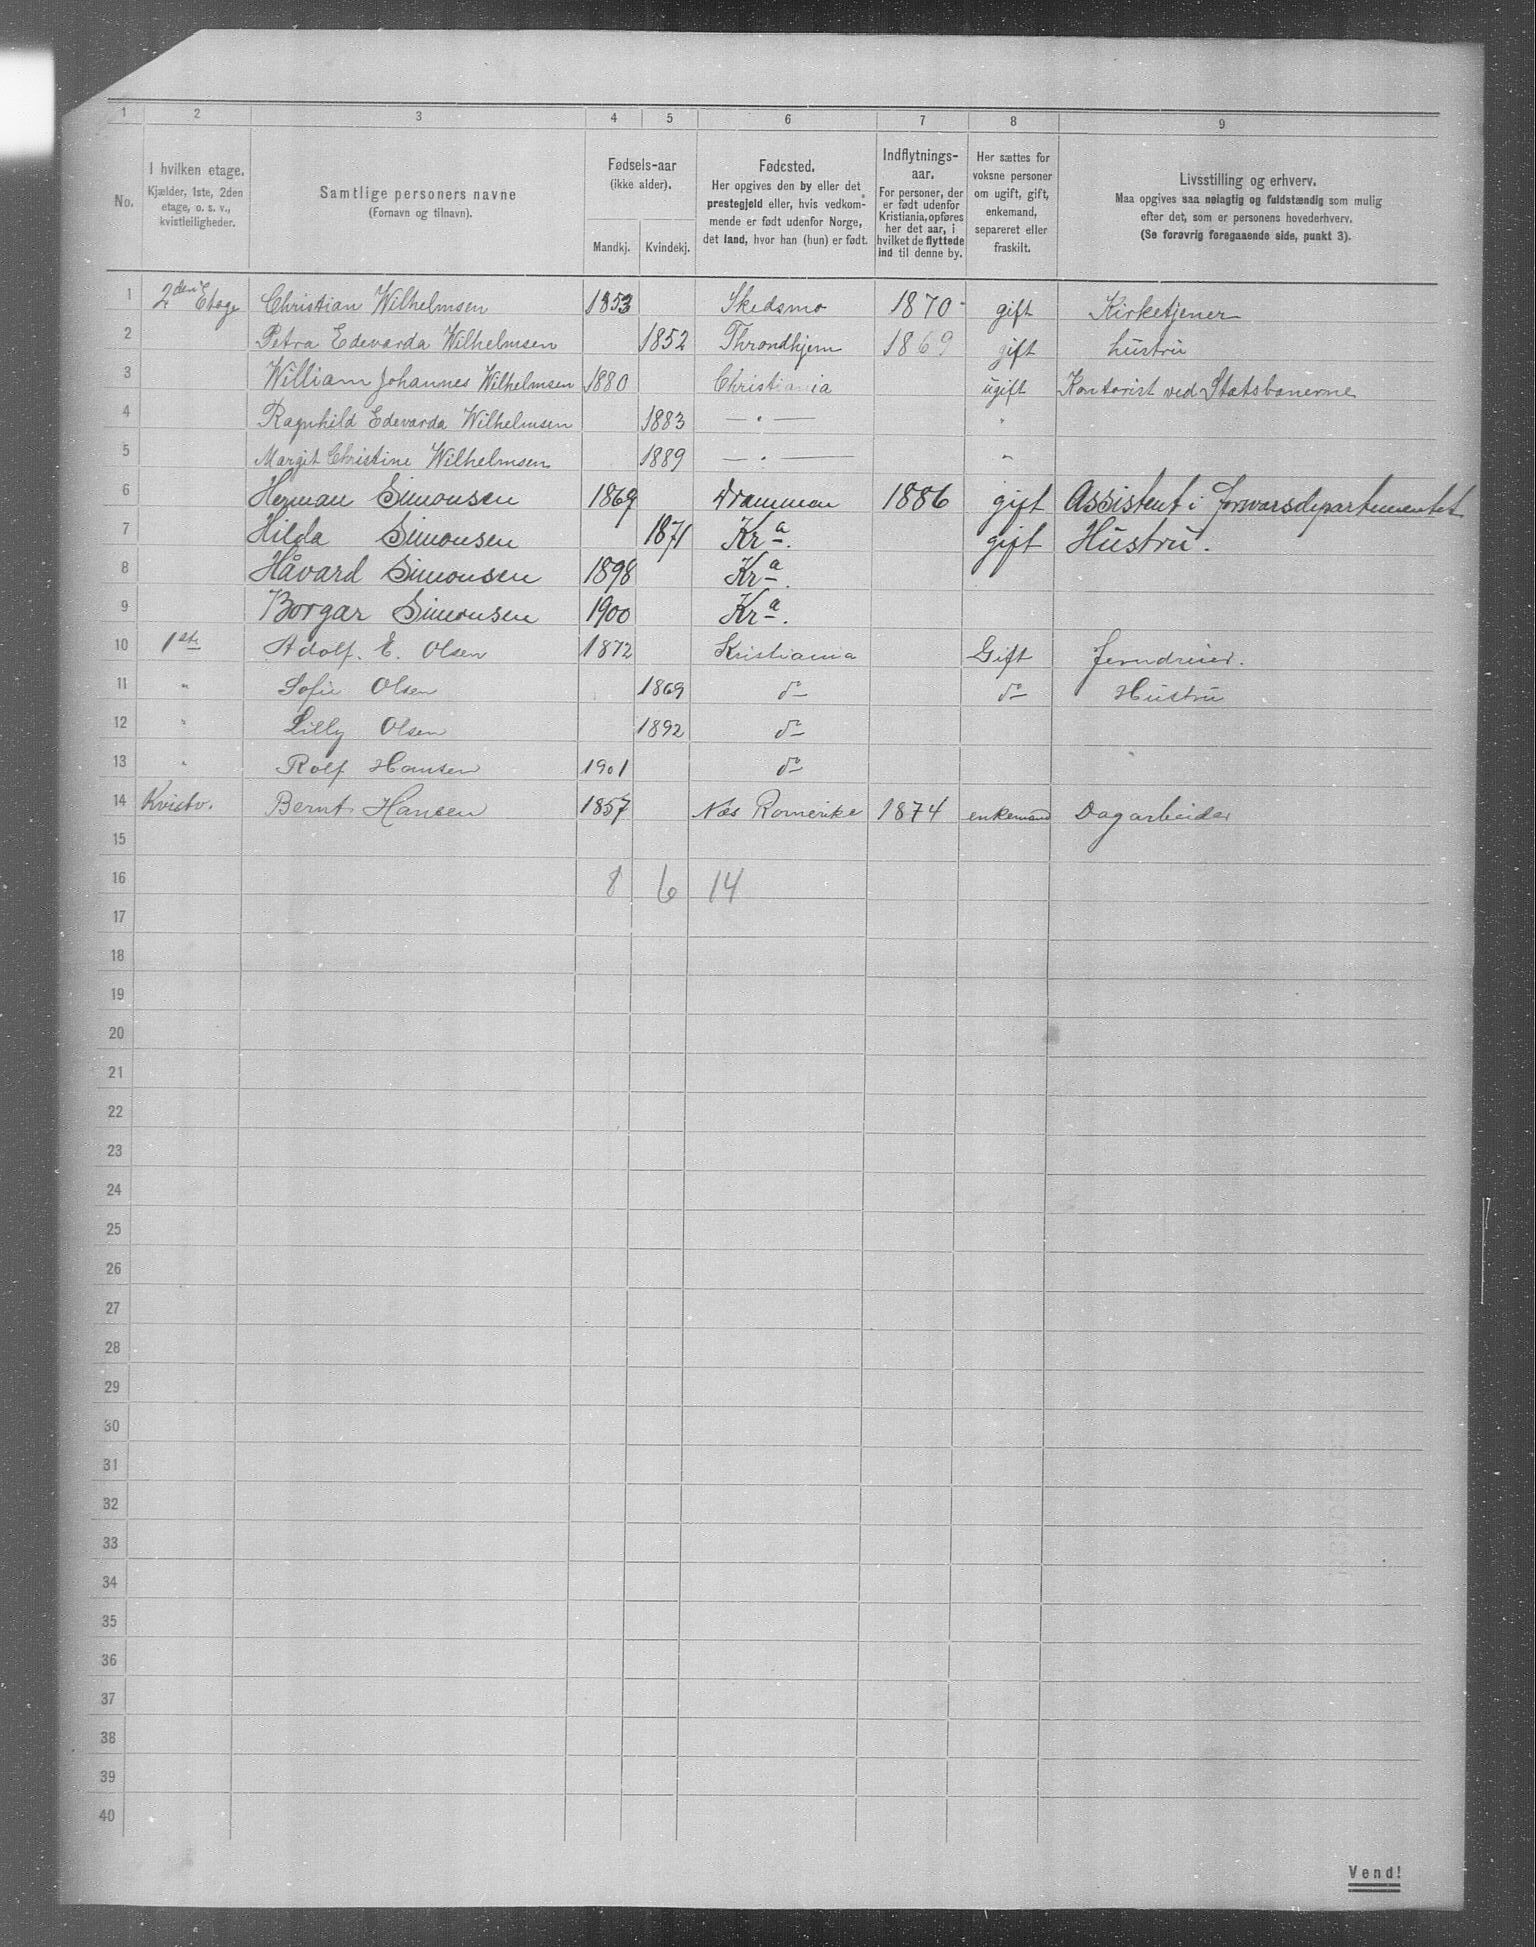 1 2 3 4 5 6 7 8 9
No.
I hvilken etage.
Kjælder, 1ste, 2den
etage, o. s. v.,
kvistleiligheder.
Samtlige personers navne
(Fornavn og tilnavn).
Fødsels-aar
(ikke alder).
Mandkj. Kvindekj.
Fødested.
Her opgives den by eller det
prestegjeld eller, hvis vedkom-
mende er født udenfor Norge,
det land, hvor han (hun) er født.
Indflytnings-
aar.
For personer, der
er født udenfor
Kristiania, opføres
her det aar, i
hvilket de flyttede
ind til denne by.
Her sættes for
voksne personer
om ugift, gift,
enkemand,
separeret eller
fraskilt.
Livsstilling og erhverv.
Maa opgives saa nøiagtig og fuldstændig som mulig
efter det, som er personens hovederhverv.
(Se forøvrig foregaaende side, punkt 3).
1 2den Etage Christian Wilhelmsen 1853 Skedsmo 1870 gift Kirketjener
2 Petra Edevarda Wilhelmsen 1852 Throndhjem 1869 gift hustru
3 William Johannes Wilhelmsen 1880 Christiania ugift Kontorist ved Statsbanerne
4 Ragnhild Edevarda Wilhelmsen 1883 — " — "
5 Margit Christine Wilhelmsen 1889 — " — "
6 Herman Simonsen 1869 Drammen 1886 gift Assistent i Forsvarsdepartementet
7 Hilda Simonsen 1871 Kra. gift Hustru.
8 Håvard Simonsen 1898 Kra.
9 Borgar Simonsen 1900 Kra.
10 1ste Adolf. E. Olsen 1872 Kristiania Gift Jerndreier.
11 " Sofie Olsen 1869 do do Hustru
12 " Lilly Olsen 1892 do
13 " Rolf Hansen 1901 do
14 Kvistv. Bernt Hansen 1857 Næs Romerike 1874 enkemand Dagarbeider
15
16 8 6 14
17
18
19
20
21
22
23
24
25
26
27
28
29
30
31
32
33
34
35
36
37
38
39
40
Vend!